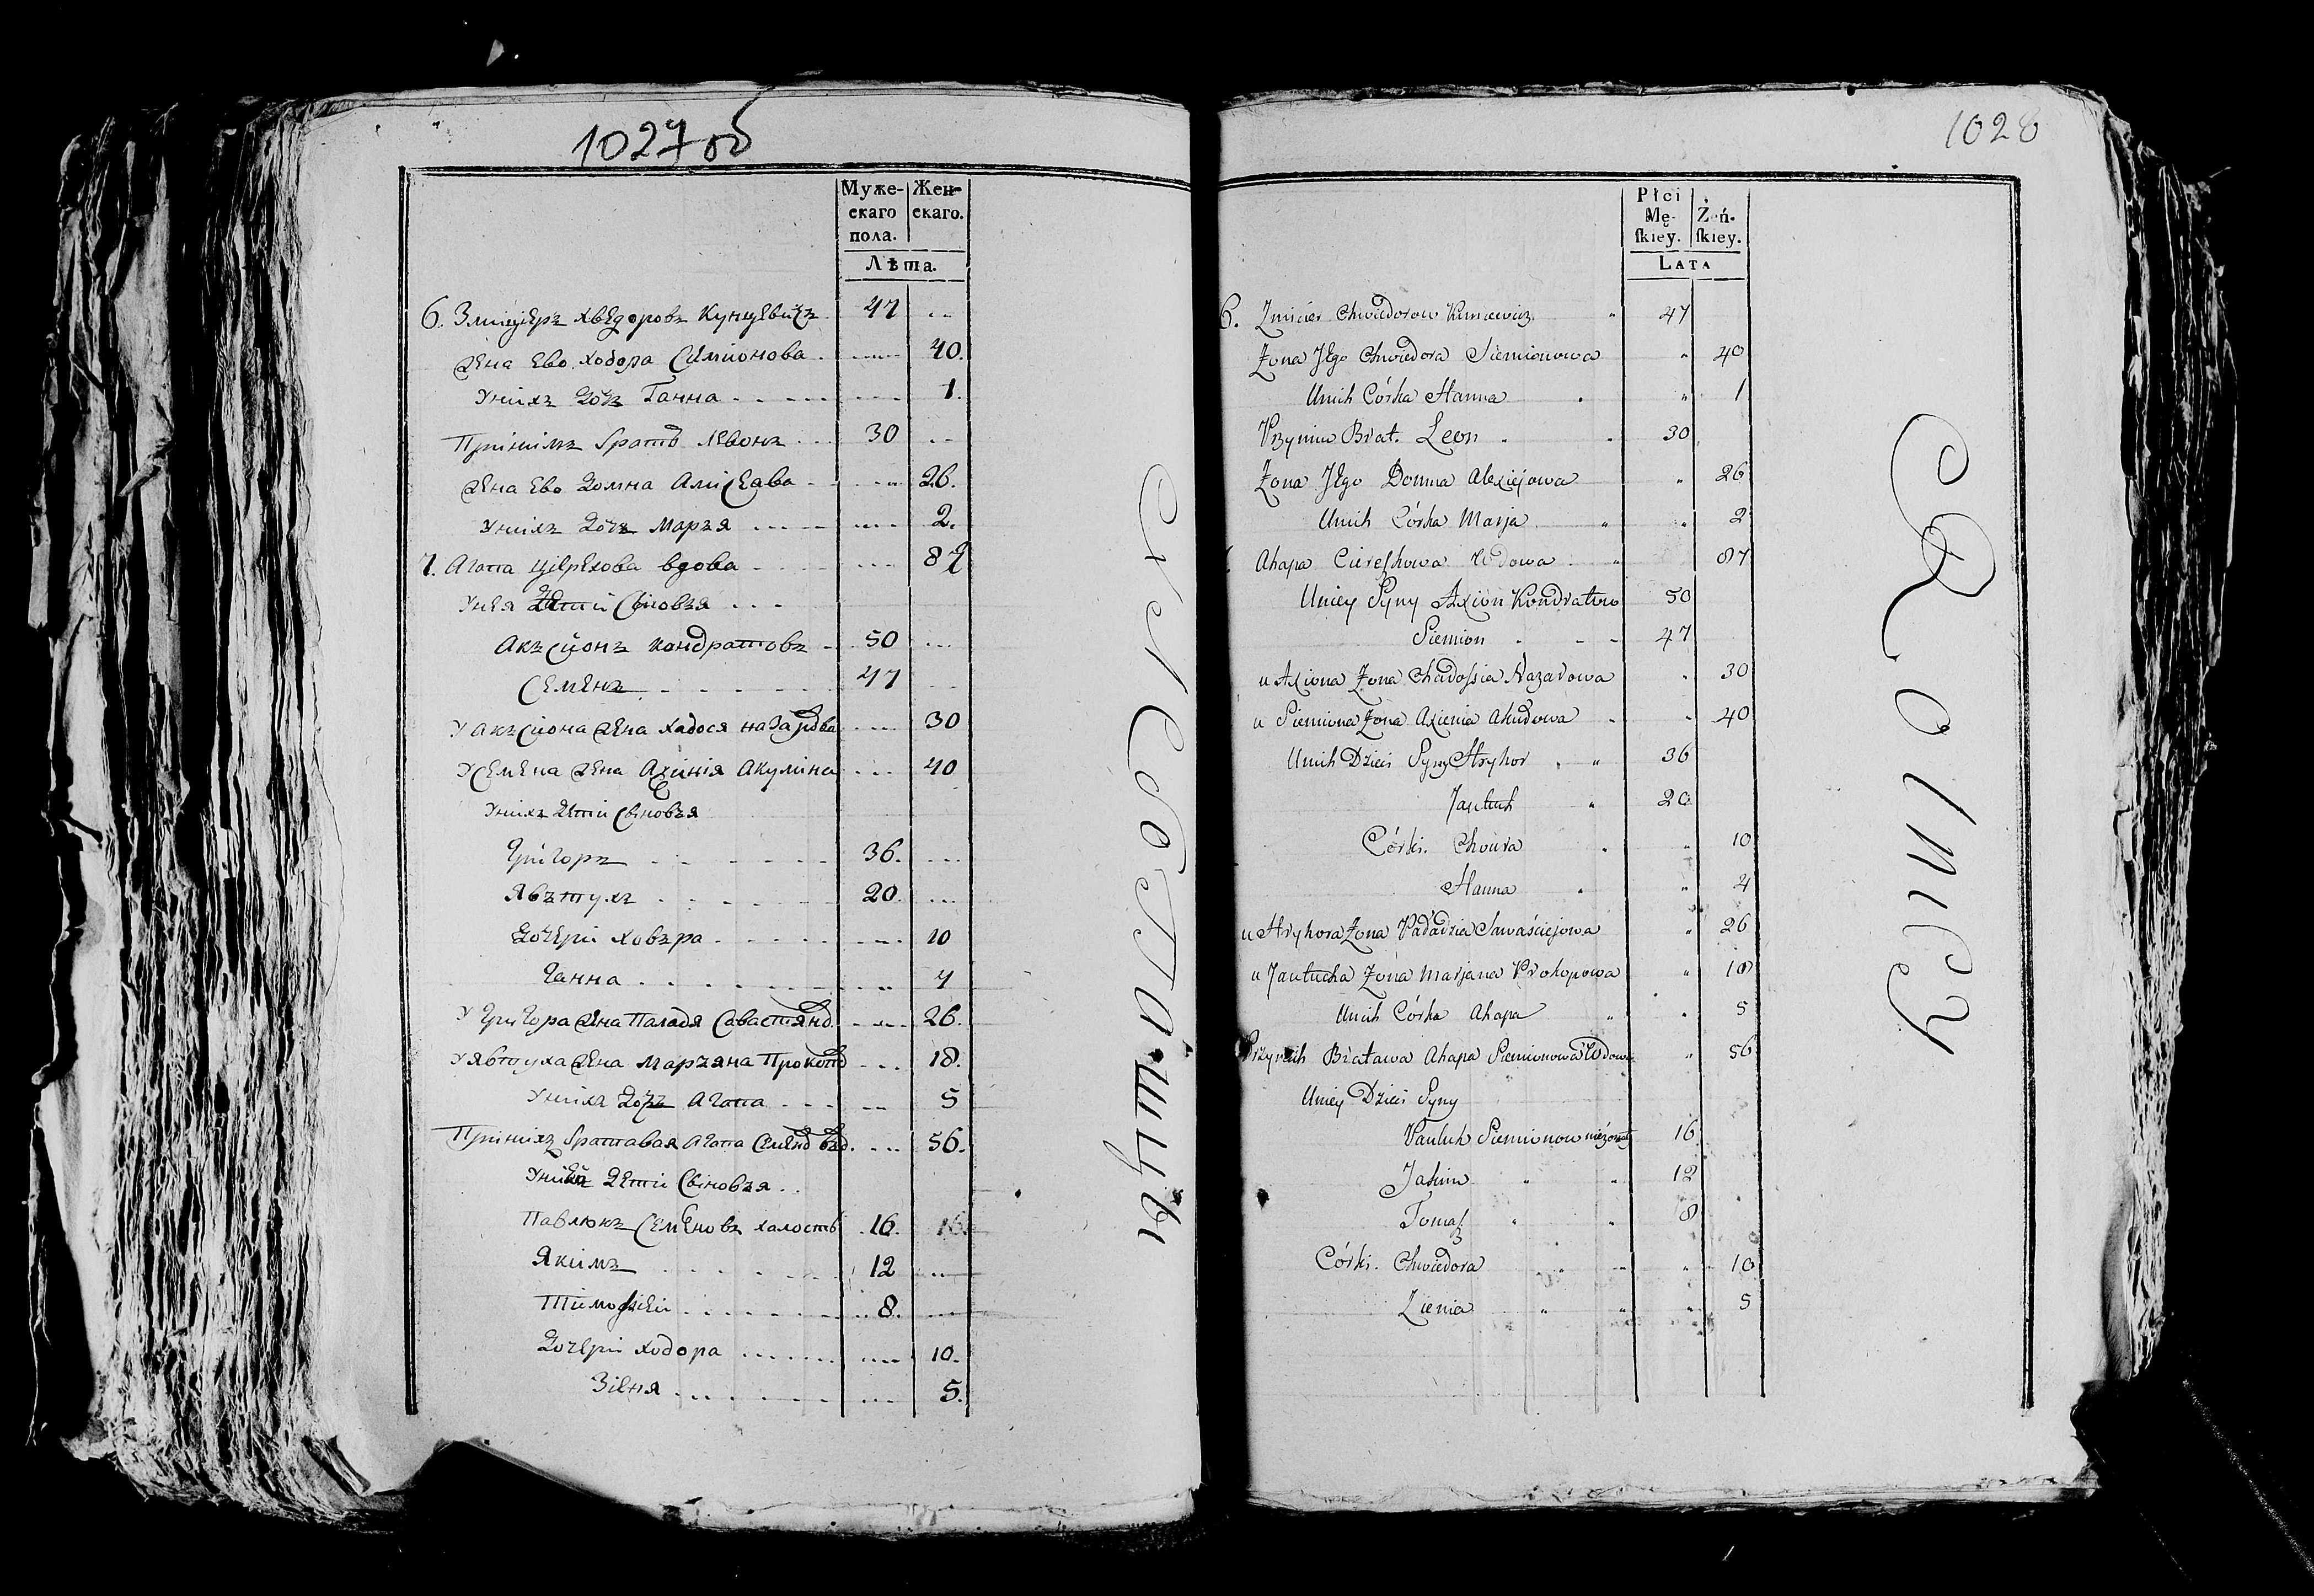 1027 об
Муже-
скаго
пола.
Жен-
скаго.
Лѣта.
6. Змицеръ хведоровъ Кунцевичъ 47
жена Ево ходора Семионова 40.
Унихъ дочъ Ганна 1.
Принимъ братъ Левонъ 30
жена Ево домна Алисеева 26.
Унихъ дочъ маръя 2.
7. Агапа церехова вдова 87
Унея дети Сыновъя
Акъсионъ кондратовъ 50
Семенъ 47
У акъсиона жена хадося назарова 30
У Семена жена Аксиния Акулина 40
Унихъ дети Сыновъя
Григоръ 36.
Явътухъ 20.
дочери ховъра 10
Ганна 4
У григора жена Паладя Савастяно 26.
У явтуха жена маръяна Прокопо 18.
Унихъ дочъ Агапа 5
Принихъ братавая агапа Семено вдо. 56.
Уней дети Сыновъя
Павлюкъ Семеновъ халостъ 16.
Якимъ 12
Тимофей 8.
дочери ходора 10.
Зиня 5.
крестьяны
1028
Płci
Mę-
ſkiey.
Żeń-
ſkiey.
LATA
6. Zmicier Chwiedorow Kuncewicz 47
Zona Jego Chwiedora Siemionowa 40
Unich Córka Hanna 1
Przynim Brat. Leon 30
Zona Jego Domna Alexiejowa 26
Unich Córka Marja 2
Ahapa Ciereszkowa Wdowa 87
Uniey Syny Axion Kondratow 50
Siemion 47
u Axiona Zona Chadossia Nazarowa 30
u Siemiona Zona Axienia Akudowa 40
Unich Dzieci Syny Hryhor 36
Jautuh 20
Córki. Chowra 10
Hanna 4
u Hryhora Zona Paładzia Sawaściejowa 26
u Jautucha Zona Marjana Prokopowa 18
Unich Córka Ahapa 5
Przynich Bratawa Ahapa Siemionowa Wdowa 56
Uniey Dzieci Syny
Pauluk Siemionow nieżonaty 16
Jakim 12
Tomasz 8
Córki. Chwiedora 10
Zienia 5
Rolnicy